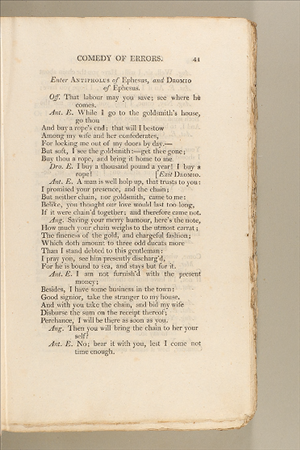 COMEDY OF ERRORS. 41
Enter ANTIPHOLUS of Ephesus, and DROMIO
of Ephesus.
Off. That labour may you save; see where he
comes.
Ant. E. While I go to the goldsmith's house,
go thou
And buy a rope's end: that will I bestow
Among my wife and her confederates,
For locking me out of my doors by day.—
But soft, I see the goldsmith:—get thee gone;
Buy thou a rope, and bring it home to me.
Dro. E. I buy a thousand pound a year! I buy a
rope! [Exit DROMIO.
Ant. E. A man is well holp up, that trusts to you:
I promised your presence, and the chain;
But neither chain, nor goldsmith, came to me:
Belike, you thought our love would last too long,
If it were chain'd together; and therefore came not.
Ang. Saving your merry humour, here's the note,
How much your chain weighs to the utmost carrat;
The fineness of the gold, and chargeful fashion;
Which doth amount to three odd ducats more
Than I stand debted to this gentleman:
I pray you, see him presently discharg'd,
For he is bound to sea, and stays but for it.
Ant. E. I am not furnish'd with the present
money;
Besides, I have some business in the town:
Good signior, take the stranger to my house,
And with you take the chain, and bid my wife
Disburse the sum on the receipt thereof;
Perchance, I will be there as soon as you.
Ang. Then you will bring the chain to her your
self?
Ant. E. No; bear it with you, lest I come not
time enough.